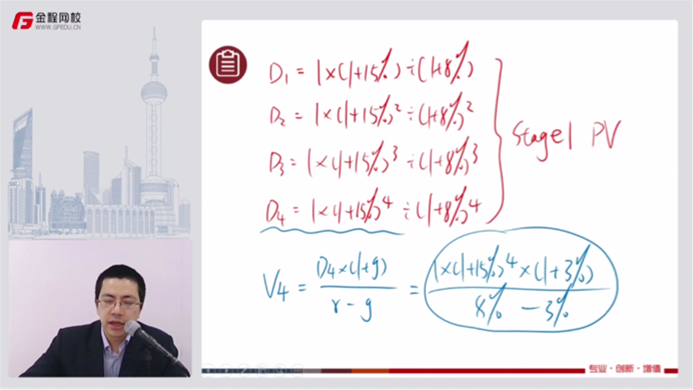 金程网校
WWW.GFEDU.CN
D₁ = 1×(1+15%)÷(1+8%)
D₂ = 1×(1+15%)²÷(1+8%)²
D₃ = 1×(1+15%)³÷(1+8%)³
D₄ = 1×(1+15%)⁴÷(1+8%)⁴
Stage1 PV
V₄ = D₄×(1+g) / r-g = 1×(1+15%)⁴×(1+3%) / 8% - 3%
专业·创新·增值